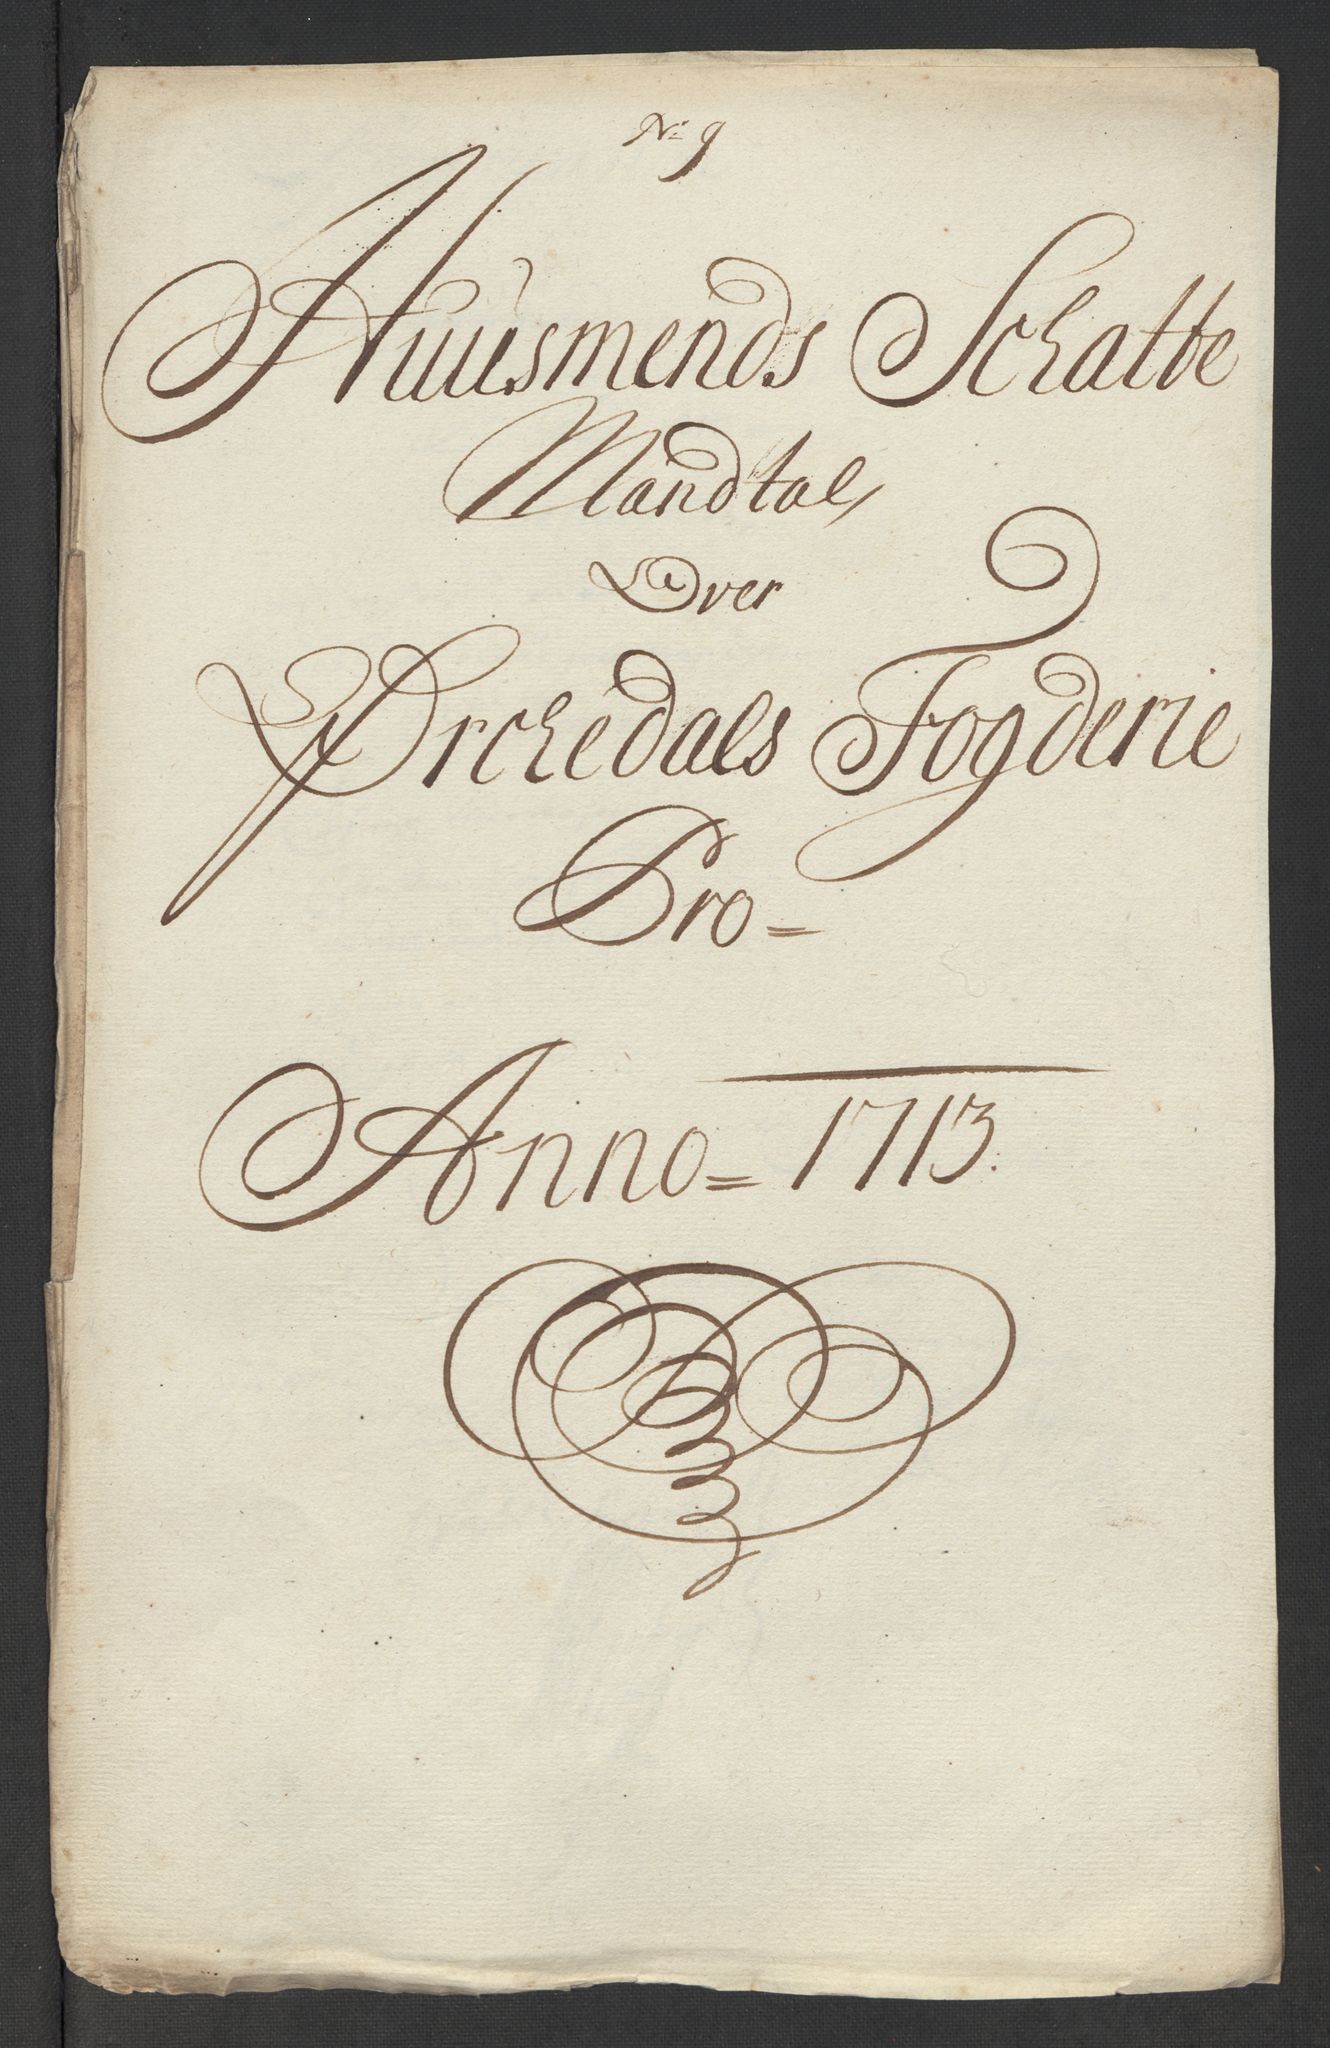 No 9
Huusmends Schatte
Mandtal
Over
Ørchedals Fogderie
Pro=
Anno= 1713.